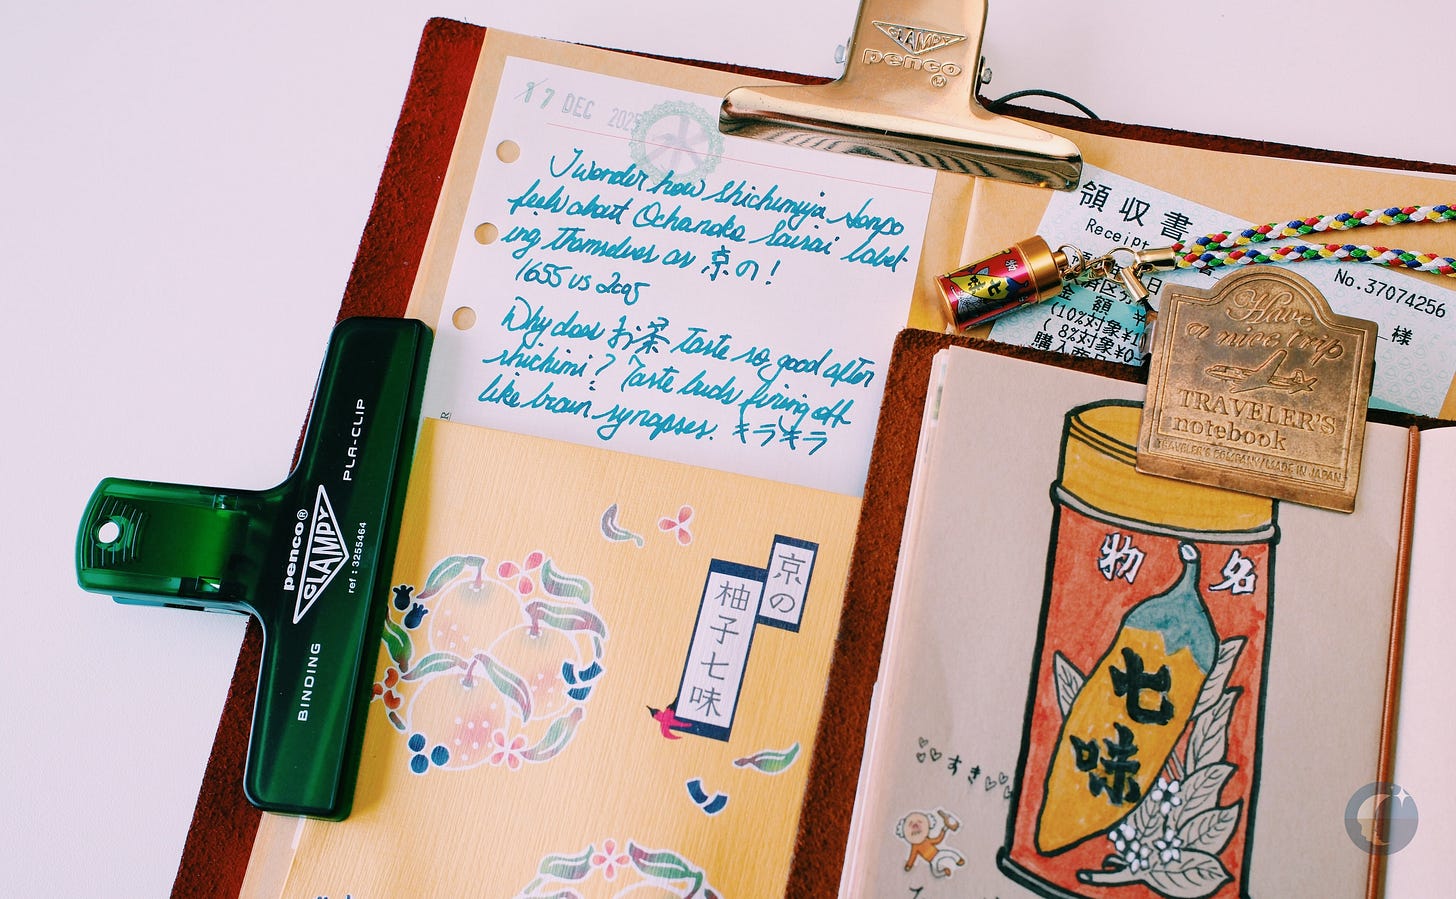 17 DEC 2025
水
I wonder how Shichimiya Honpo
feels about Ochanoko Saisai label-
ing themselves as 京の!
1655 vs 2005
Why does お茶 taste so good after
shichimi? Taste buds firing off
like brain synapses. キラキラ
CLAMPY
penco®
領収書
Receipt
No.37074256
様
金 額 ¥
(10%対象¥1
( 8%対象¥0
購入商品
七味
Have
a nice trip
TRAVELER'S
notebook
TRAVELER'S COMPANY/MADE IN JAPAN
PLA-CLIP
penco®
CLAMPY
ref : 3255464
BINDING
京の
柚子七味
名物
七味
すき